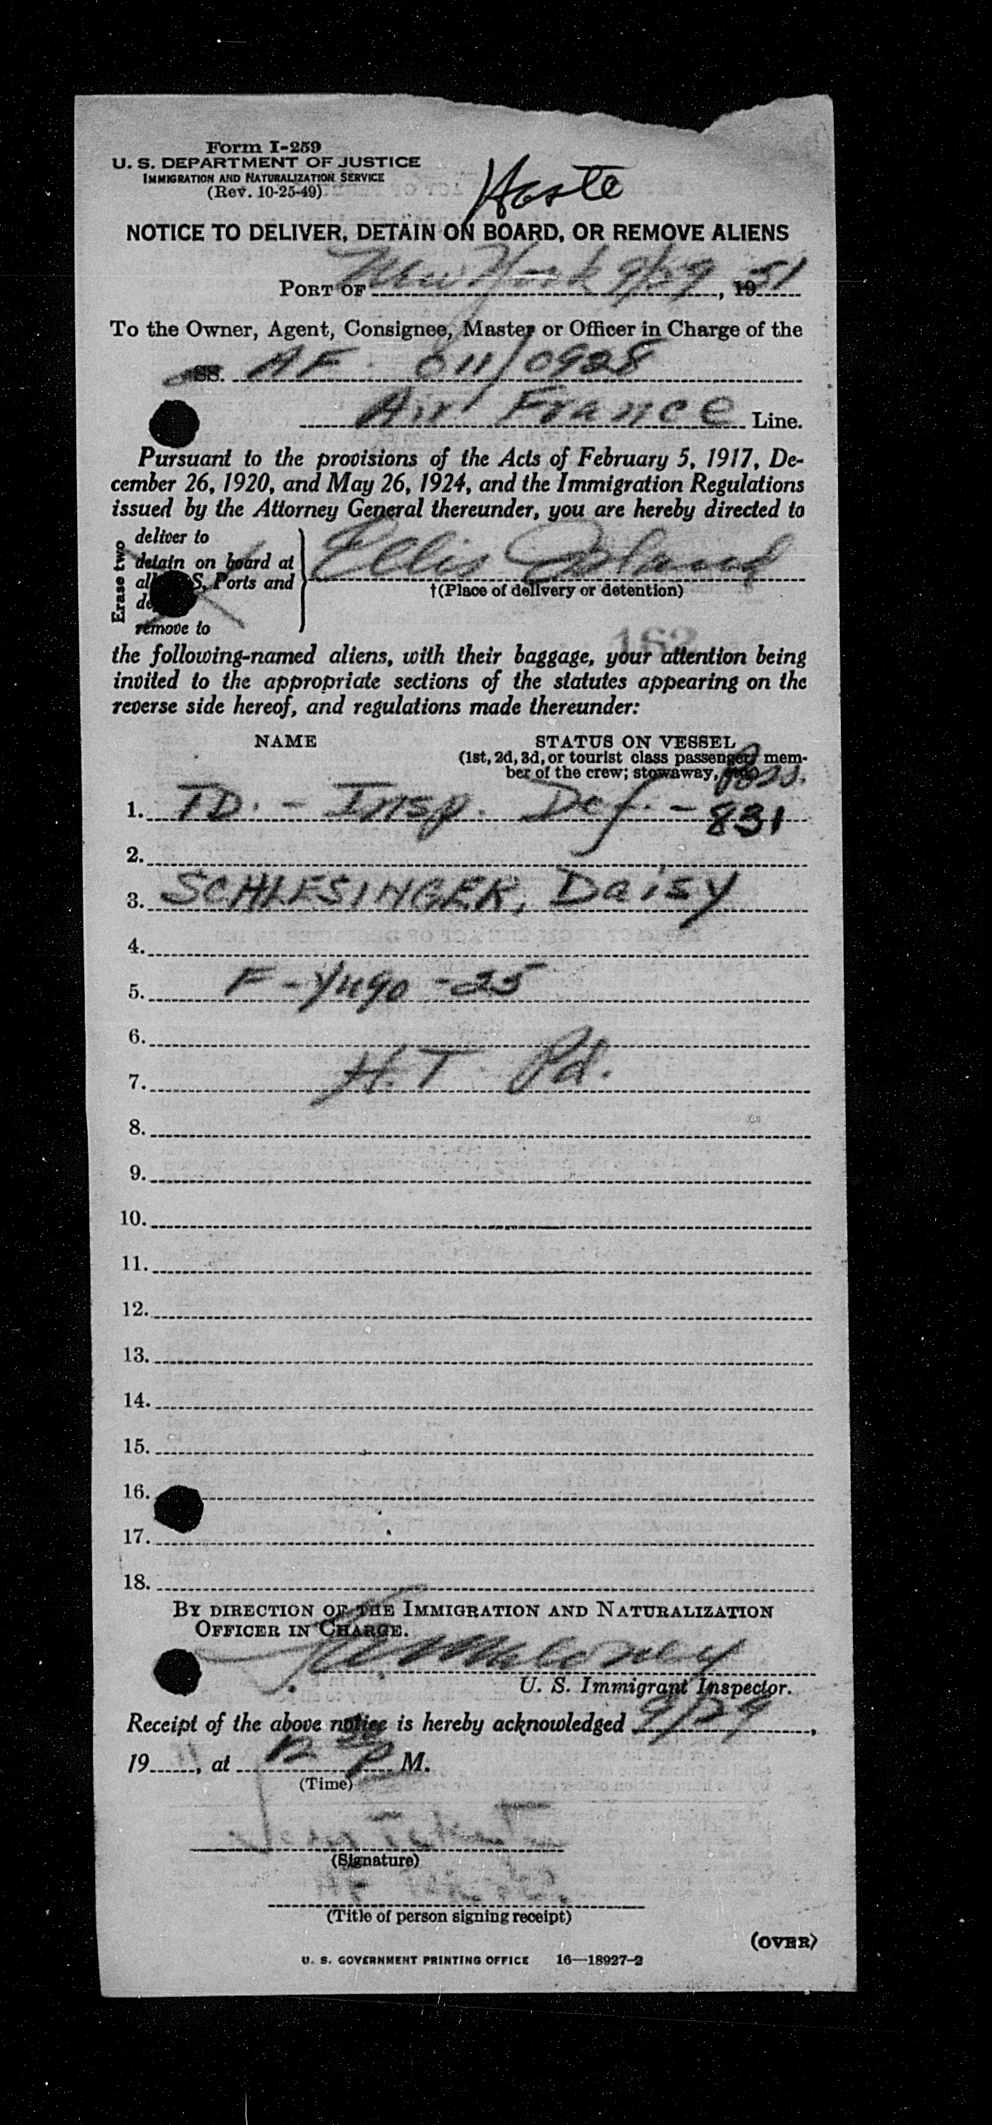 Form I-259
U. S. DEPARTMENT OF JUSTICE
IMMIGRATION AND NATURALIZATION SERVICE
(Rev. 10-25-49)
Haste
NOTICE TO DELIVER, DETAIN ON BOARD, OR REMOVE ALIENS
PORT OF New York 9/29, 1951
To the Owner, Agent, Consignee, Master or Officer in Charge of the
SS. AF. 011/0928
Air France Line.
Pursuant to the provisions of the Acts of February 5, 1917, De-
cember 26, 1920, and May 26, 1924, and the Immigration Regulations
issued by the Attorney General thereunder, you are hereby directed to
Erase two
deliver to
detain on board at
all S. Ports and
remove to
Ellis Island
†(Place of delivery or detention)
162
the following-named aliens, with their baggage, your attention being
invited to the appropriate sections of the statutes appearing on the
reverse side hereof, and regulations made thereunder:
NAME STATUS ON VESSEL
(1st, 2d, 3d, or tourist class passenger, mem-
ber of the crew; stowaway, Pass.
1. TD. - Insp. Def. - 831
2.
3. SCHLESINGER, Daisy
4.
5. F - Yugo - 25
6.
7. H.T Pd.
8.
9.
10.
11.
12.
13.
14.
15.
16.
17.
18.
BY DIRECTION OF THE IMMIGRATION AND NATURALIZATION
OFFICER IN CHARGE.
U. S. Immigrant Inspector.
Receipt of the above notice is hereby acknowledged 9/29,
19, at 12 30 P M.
(Time)
(Signature)
(Title of person signing receipt)
(OVER)
U. S. GOVERNMENT PRINTING OFFICE 16—18927-2